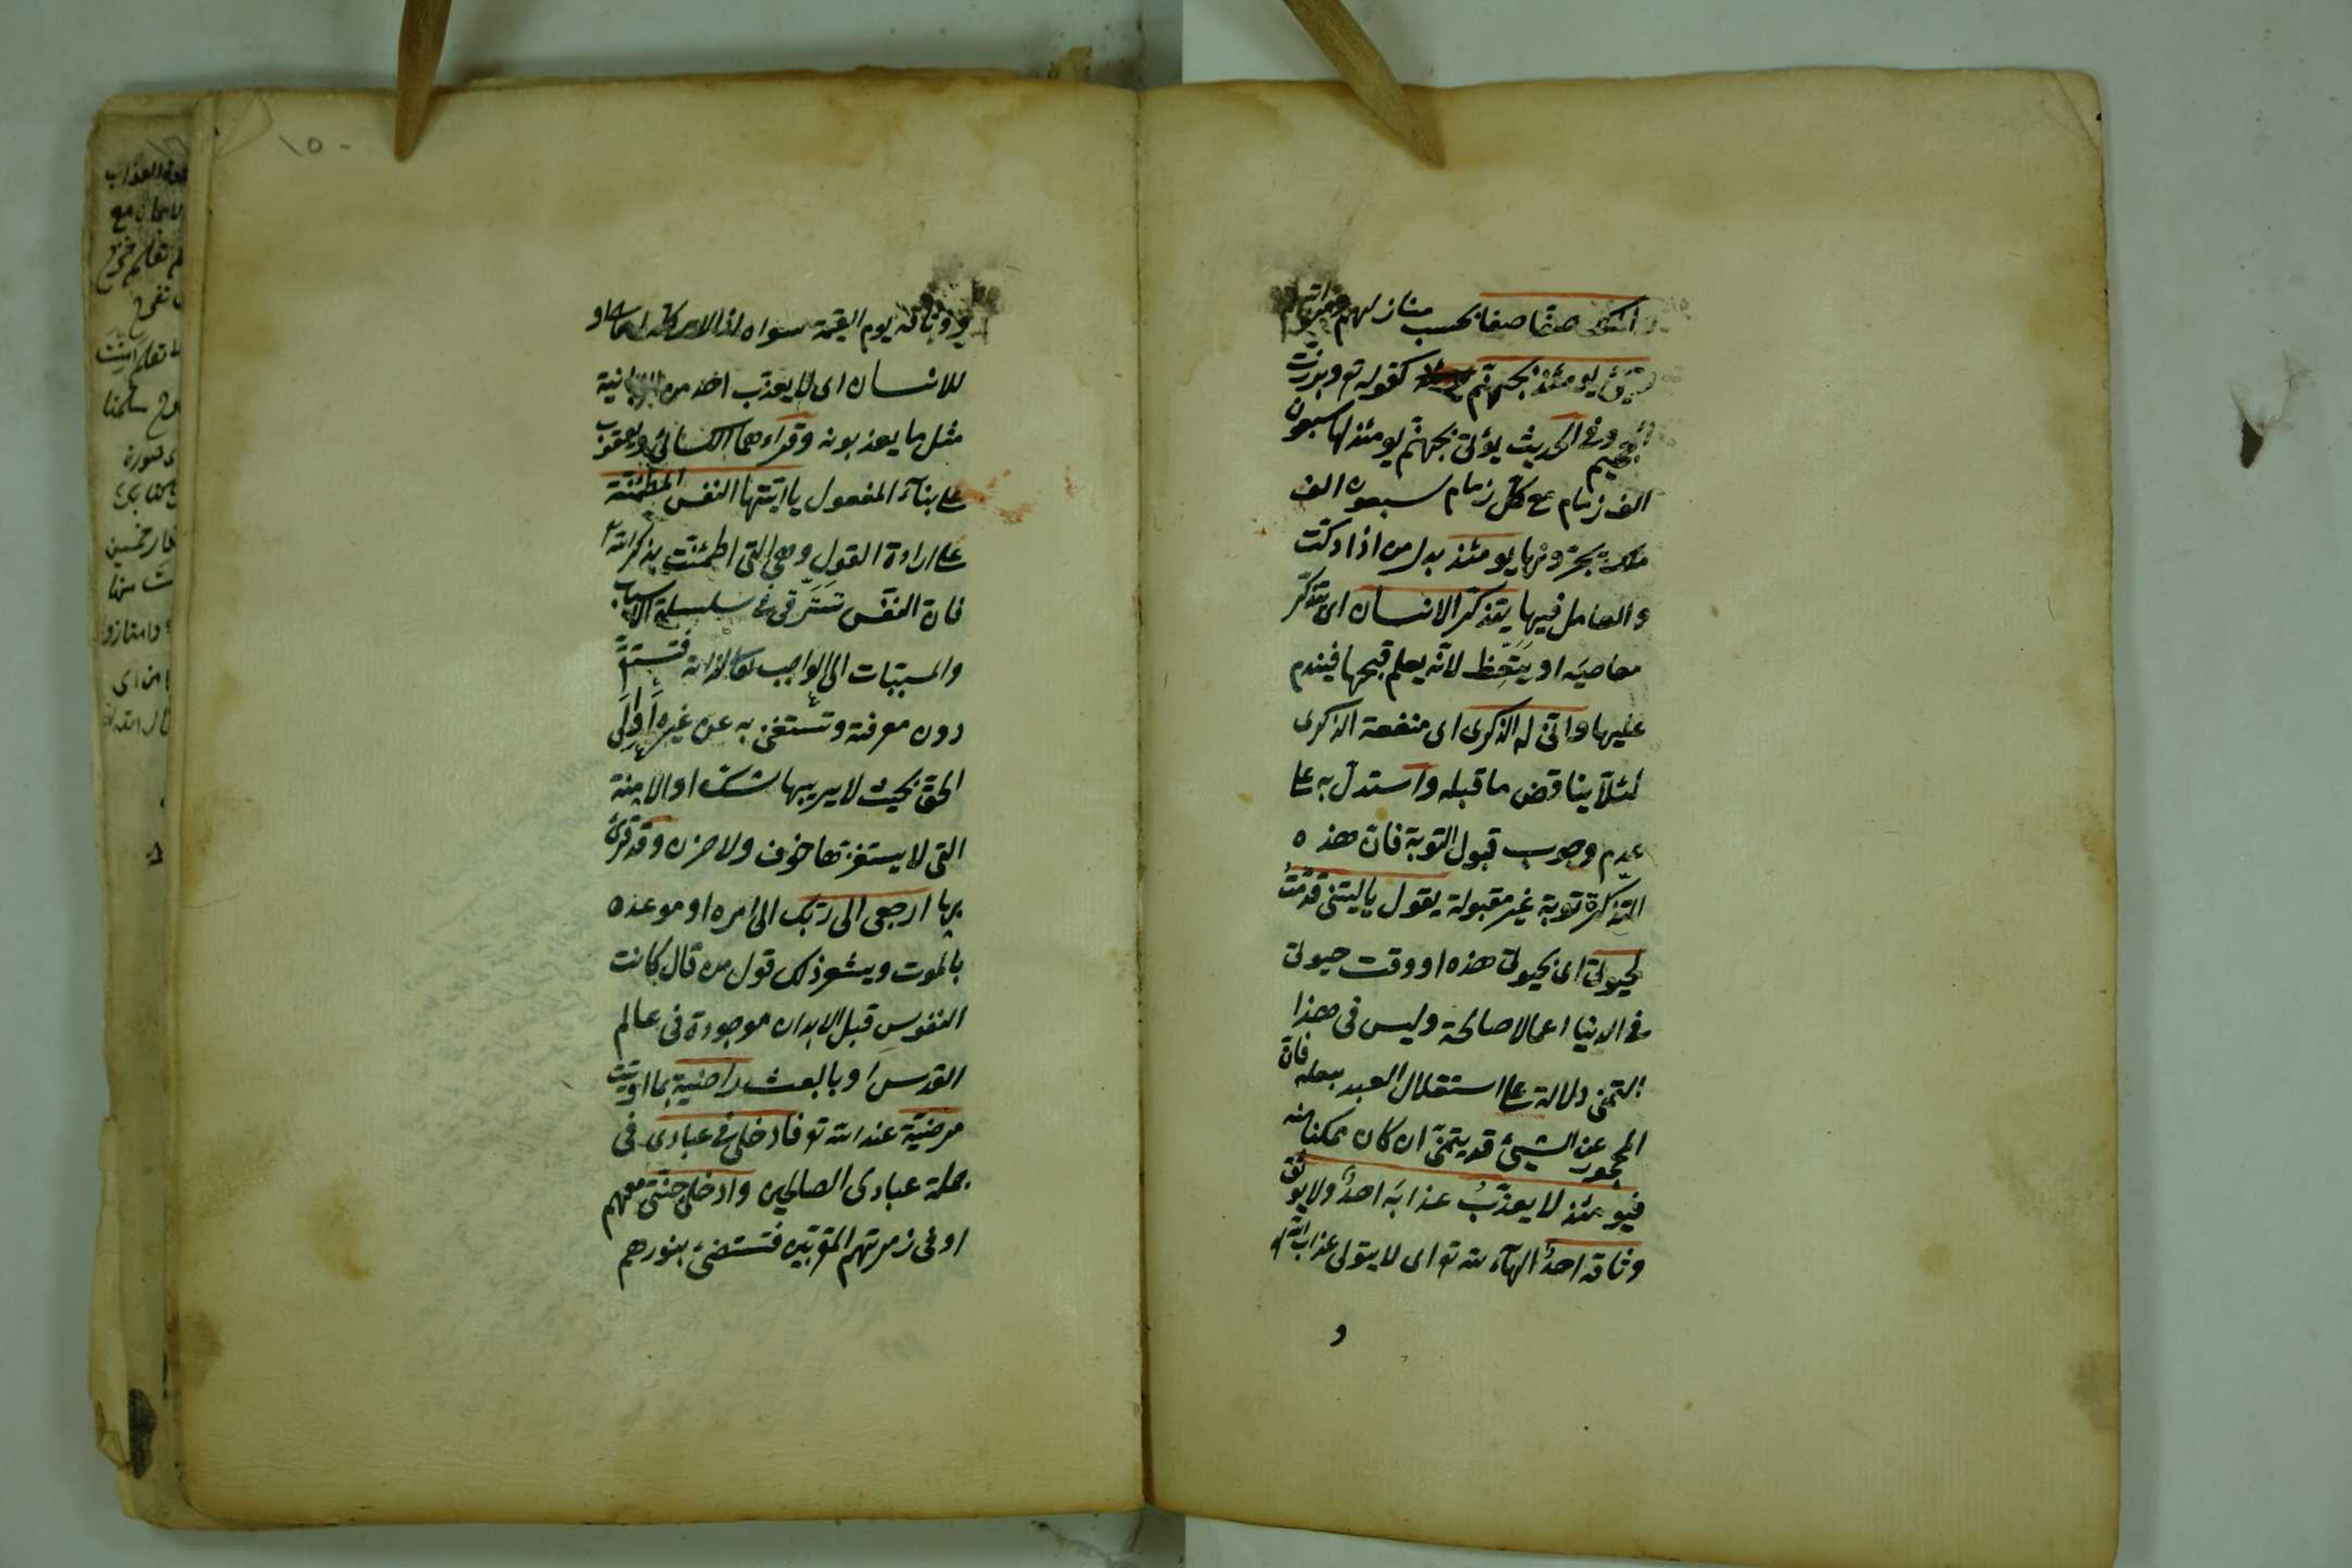 والملك صفا صفا بحسب منازلهم ومراتبهم
وجئ يومئذ بجهنم كقوله تع وبرزت
الجحيم وفي الحديث يؤتى بجهنم يومئذ لها سبعون
الف زمام مع كل زمام سبعون الف
ملك يجرونها يومئذ بدل من اذا دكت
والعامل فيها يتذكر الانسان اى يتذكر
معاصيه او يتعظ لانه يعلم قبحها فيندم
عليها وانى له الذكرى اى منفعة الذكرى
لئلا يناقض ما قبله واستدل به على
عدم وجوب قبول التوبة فان هذه
التذكرة توبة غير مقبولة يقول ياليتنى قدمت
لحيوتى اى لحيوتى هذه او وقت حيوتى
في الدنيا اعمالا صالحة وليس في هذا
التمنى دلالة على استقلال العبد بفعله فان
المحجور عن الشيئ قد يتمنى ان كان ممكنا منه
فيومئذ لا يعذب عذابه احد ولا يوثق
وثاقه احد الهاء لله تع اى لا يتولى عذاب الله
و
ووثاقه يوم القيمة سواه اذ الامر كله له او
للانسان اى لا يعذب احد من الزبانية
مثل ما يعذبونه وقرأهما الكسائي ويعقوب
على بناء المفعول يا ايتها النفس المطمئنة
على ارادة القول وهى التى اطمئنت بذكر الله
فان النفس تترقى في سلسلة الاسباب
والمسببات الى الواجب لذاته فتستقر
دون معرفته وتستغنى به عن غيره او الى
الحق بحيث لا يريبها شك او الامنة
التى لا يستفزها خوف ولا حزن وقد قرئ
بها ارجعى الى ربك الى امره او موعده
بالموت ويشعر ذلك قول من قال كانت
النفوس قبل الابدان موجودة في عالم
القدس او بالبعث راضية بما اوتيت
مرضية عند الله تع فادخلى في عبادى في
جملة عبادى الصالحين وادخلى جنتى معهم
او في زمرتهم المقربين فتستضئ بنورهم
١٥٠